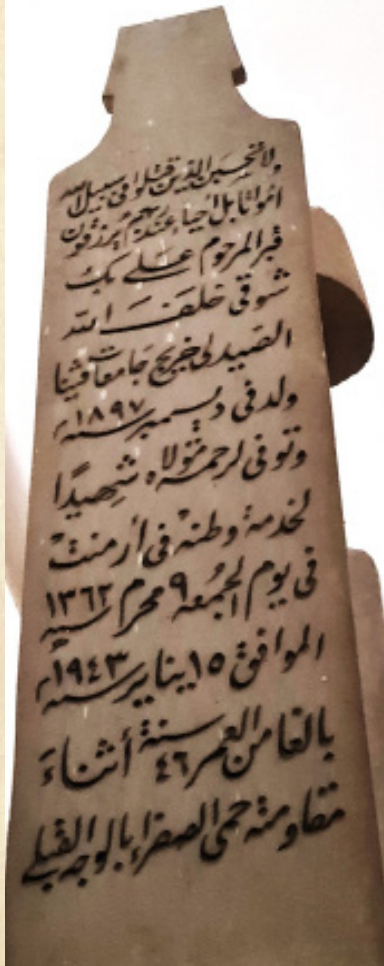 ولا تحسبن الذين قتلوا فى سبيل الله
امواتا بل أحياء عند ربهم يرزقون
قبر المرحوم على بك
شوقى خلف الله
الصيدلى خريج جامعات فيينا
ولد فى ديسمبر سنة ١٨٩٧م
وتوفى لرحمة مولاه شهيدًا
لخدمة وطنه فى أرمنت
فى يوم الجمعة ٩ محرم سنة ١٣٦٢
الموافق ١٥ يناير سنة ١٩٤٣م
بالغا من العمر ٤٦ سنة أثناء
مقاومته حمى الصفراء بالوجه القبلى